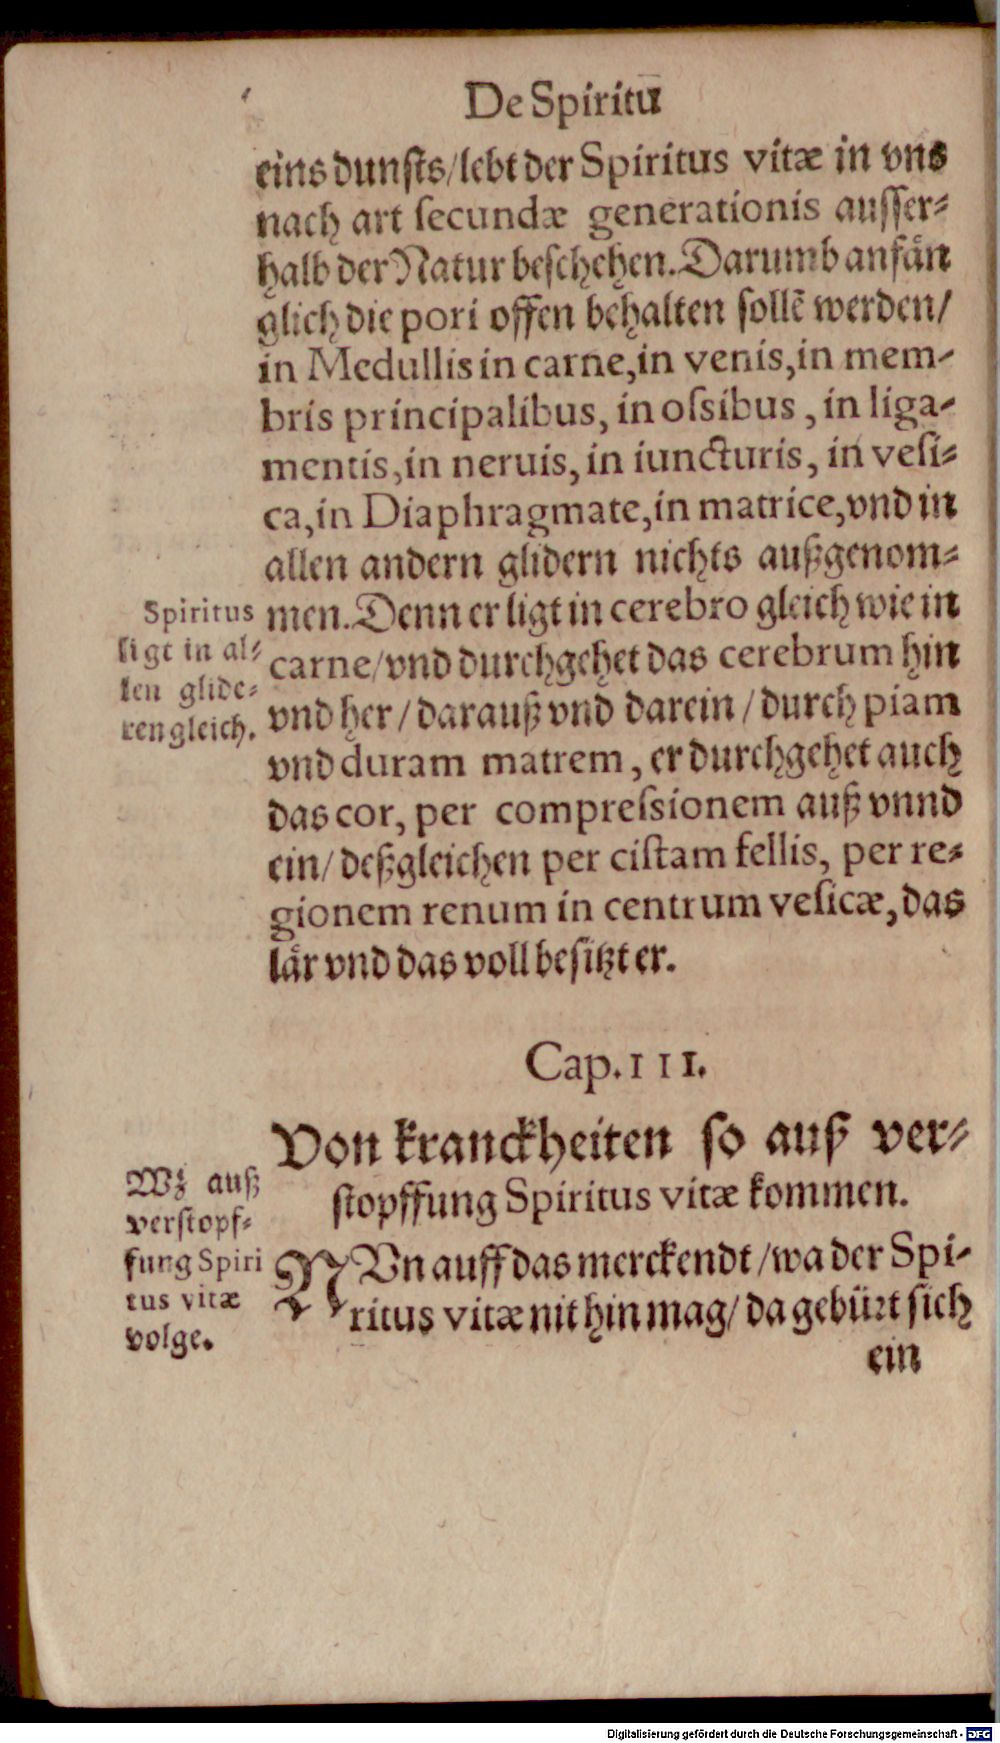 De Spiritu
eins dunſts/lebt der Spiritus vitæ in vns
nach art ſecundæ generationis auſſer⸗
halb der Natur beſchehen. Darumb anfaͤn
glich die pori offen behalten ſollẽ werden/
in Medullis in carne, in venis, in mem-
bris principalibus, in oſsibus, in liga-
mentis, in neruis, in iuncturis, in veſi-
ca, in Diaphragmate, in matrice, vnd in
allen andern glidern nichts außgenom⸗
men. Denn er ligt in cerebro gleich wie in
carne/vnd durchgehet das cerebrum hin
vnd her/darauß vnd darein/durch piam
vnd duram matrem, er durchgehet auch
das cor, per compreſsionem auß vnnd
ein/deßgleichen per ciſtam fellis, per re-
gionem renum in centrum veſicæ, das
laͤr vnd das voll beſitzt er.
Spiritus
ligt in al⸗
len glide⸗
ren gleich.
Cap. III.
Von kranckheiten ſo auß ver⸗
ſtopffung Spiritus vitæ kommen.
Wz auß
verſtopf⸗
fung Spiri
tus vitæ
volge.
NVn auff das merckendt/wa der Spi-
ritus vitæ nit hin mag/da gebürt ſich
ein
Digitalisierung gefördert durch die Deutsche Forschungsgemeinschaft - DFG